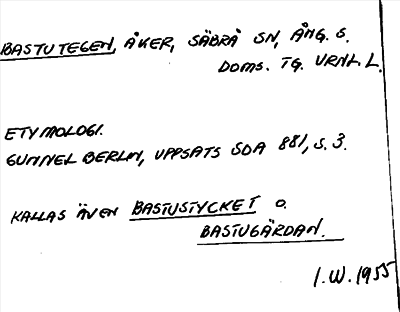 BASTUTEGEN, ÅKER, SÄBRÅ SN, ÅNG. S.
DOMS. TG. VRNL. L.
ETYMOLOGI.
GUNNEL BERLIN, UPPSATS SOA 881, S. 3.
KALLAS ÄVEN BASTUSTYCKET O.
BASTUGÄRDAN.
I.W. 1955